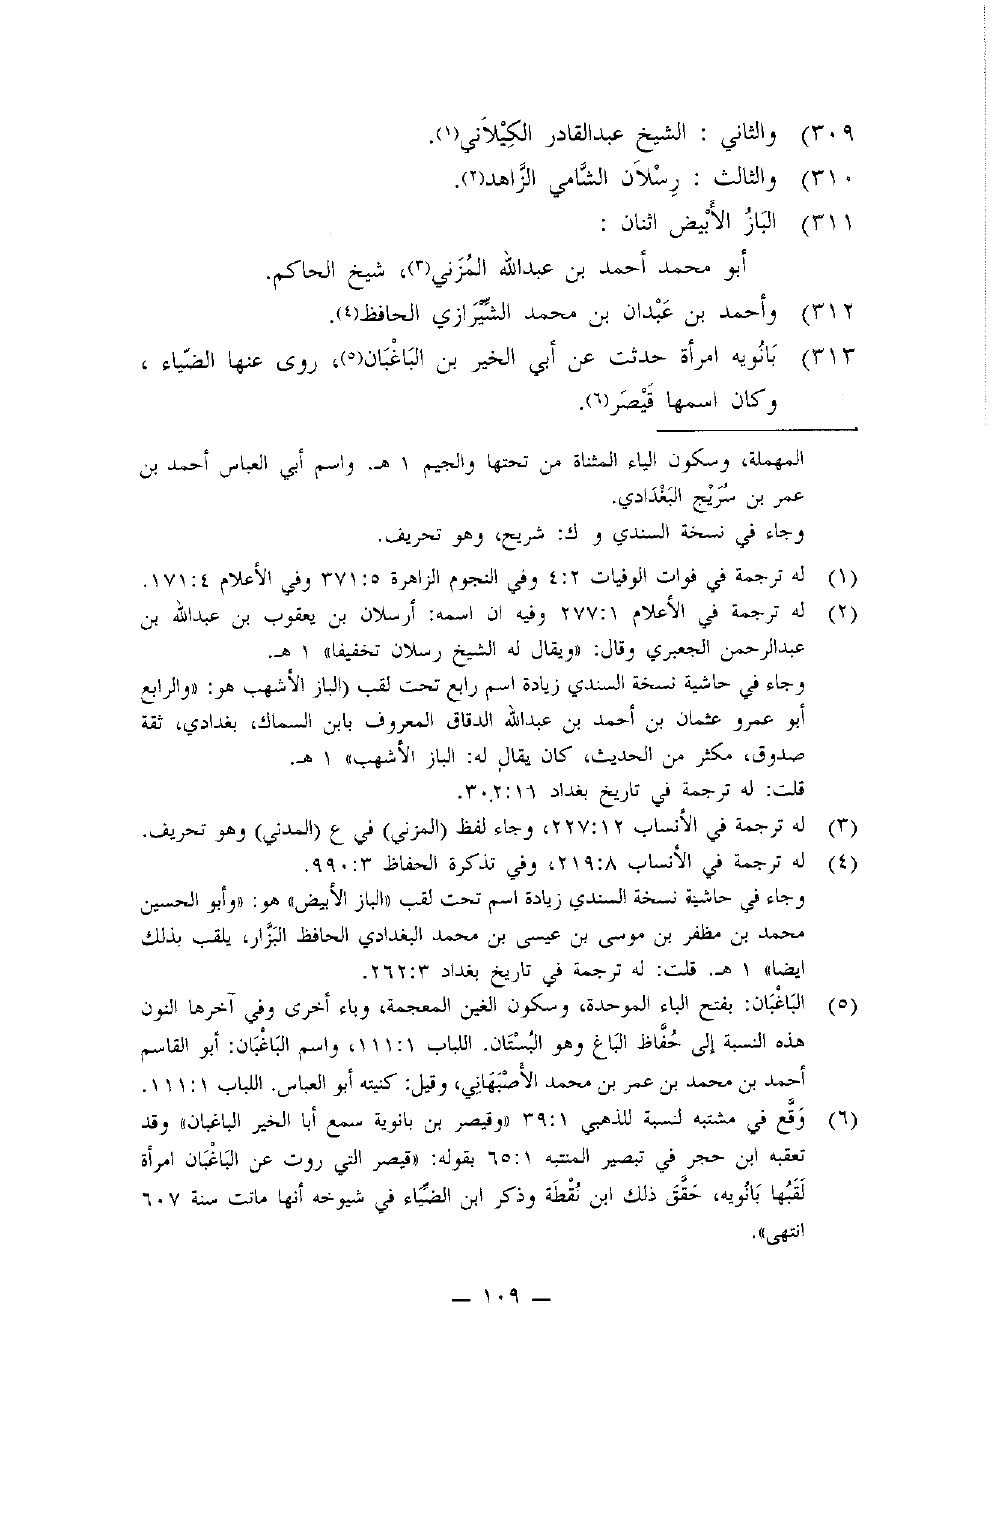 ٣٠٩) والثاني : الشيخ عبدالقادر الكِيْلاَني(١).
٣١٠) والثالث : رِسْلاَن الشَّامي الزَّاهد(٢).
٣١١) البَازُ الأَبْيض اثنان :
أبو محمد أحمد بن عبدالله المُزَني(٣)، شيخ الحاكم.
٣١٢) وأحمد بن عَبْدان بن محمد الشِّيْرَازي الحافظ(٤).
٣١٣) بَانُويه امرأة حدثت عن أبي الخير بن البَاغْبَان(٥)، روى عنها الضّياء ،
وكان اسمها قَيْصَر(٦).
المهملة، وسكون الياء المثناة من تحتها والجيم ١ هـ. واسم أبي العباس أحمد بن
عمر بن سُرَيْج البَغْدَادي.
وجاء في نسخة السندي و ك: شريح، وهو تحريف.
(١) له ترجمة في فوات الوفيات ٤:٢ وفي النجوم الزاهرة ٣٧١:٥ وفي الأعلام ١٧١:٤.
(٢) له ترجمة في الأعلام ٢٧٧:١ وفيه ان اسمه: أرسلان بن يعقوب بن عبدالله بن
عبدالرحمن الجعبري وقال: «ويقال له الشيخ رسلان تخفيفا» ١ هـ.
وجاء في حاشية نسخة السندي زيادة اسم رابع تحت لقب (الباز الأشهب هو: «والرابع
أبو عمرو عثمان بن أحمد بن عبدالله الدقاق المعروف بابن السماك، بغدادي، ثقة
صدوق، مكثر من الحديث، كان يقال له: الباز الأشهب» ١ هـ.
قلت: له ترجمة في تاريخ بغداد ٣٠٢:١٦.
(٣) له ترجمة في الأنساب ٢٢٧:١٢، وجاء لفظ (المزني) في ع (المدني) وهو تحريف.
(٤) له ترجمة في الأنساب ٢١٩:٨، وفي تذكرة الحفاظ ٩٩٠:٣.
وجاء في حاشية نسخة السندي زيادة اسم تحت لقب «الباز الأبيض» هو: «وأبو الحسين
محمد بن مظفر بن موسى بن عيسى بن محمد البغدادي الحافظ البَزَّار، يلقب بذلك
ايضا» ١ هـ. قلت: له ترجمة في تاريخ بغداد ٢٦٢:٣.
(٥) البَاغْبَان: بفتح الباء الموحدة، وسكون الغين المعجمة، وباء أخرى وفي آخرها النون
هذه النسبة إلى حُفَّاظ البَاغ وهو البُسْتَان. اللباب ١١١:١، واسم البَاغْبَان: أبو القاسم
أحمد بن محمد بن عمر بن محمد الأَصْبَهَاني، وقيل: كنيته أبو العباس. اللباب ١١١:١.
(٦) وَقَّع في مشتبه لنسبة للذهبي ٣٩:١ «وقيصر بن بانوية سمع أبا الخير الباغبان» وقد
تعقبه ابن حجر في تبصير المنتبه ٦٥:١ بقوله: «قيصر التي روت عن البَاغْبَان امرأة
لَقَبُها بَانُويه، حَقَّقَ ذلك ابن نُقْطَة وذكر ابن الضِّيَاء في شيوخه أنها ماتت سنة ٦٠٧
انتهى».
— ١٠٩ —